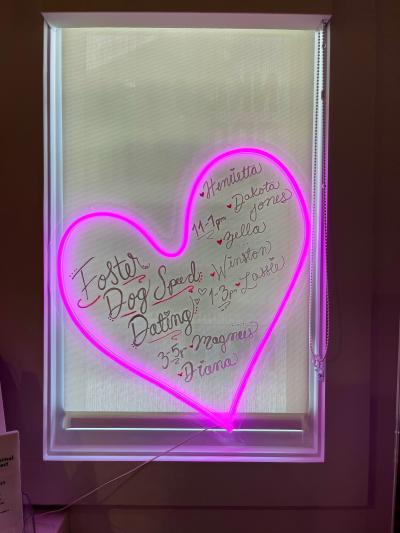 Foster
Dog Speed
Dating
Henrietta
11-1pm Dakota
Jones
Zella
Winston
1-3p Lassie
3-5p Magnus
Diana